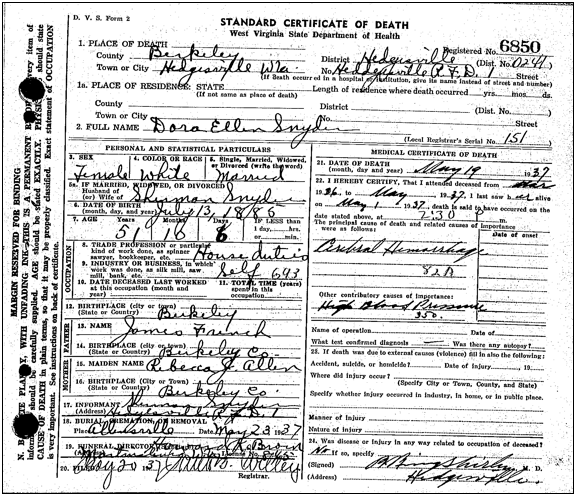 D. V. S. Form 2
STANDARD CERTIFICATE OF DEATH
West Virginia State Department of Health
Registered No. 6850
1. PLACE OF DEATH
County Berkeley District Hedgesville (Dist. No. 0241)
Town or City Hedgesville W.Va. No. Hedgesville R.F.D. 1 Street
(If death occurred in a hospital or institution, give its name instead of street and number)
1a. PLACE OF RESIDENCE: STATE Length of residence where death occurred yrs. mos. ds.
(If not same as place of death)
County District (Dist. No. )
Town or City No. Street
2. FULL NAME Dora Ellen Snyder
(Local Registrar's Serial No. 151
PERSONAL AND STATISTICAL PARTICULARS
3. SEX 4. COLOR OR RACE 5. Single, Married, Widowed, or Divorced (write the word)
Female White Married
5a. IF MARRIED, WIDOWED, OR DIVORCED
Husband of (or) Wife of Sherman Snyder
6. DATE OF BIRTH (month, day, and year) July 13, 1886
7. AGE Years Months Days If LESS than 1 day, hrs. or min.
51 10 6
OCCUPATION
8. Trade, profession or particular kind of work done, as spinner, sawyer, bookkeeper, etc. House duties
9. INDUSTRY OR BUSINESS, in which work was done, as silk mill, saw mill, bank, etc. Self 693
10. DATE DECEASED LAST WORKED at this occupation (month and year) 11. TOTAL TIME (years) spent in this occupation
12. BIRTHPLACE (city or town) Berkeley
(State or Country)
FATHER
13. NAME James French
14. BIRTHPLACE (city or town) Berkeley Co.
(State or Country)
MOTHER
15. MAIDEN NAME Rebecca J Allen
16. BIRTHPLACE (city or town) Berkeley Co.
(State or Country)
17. INFORMANT Sherman Snyder
(Address) Hedgesville R.F.D. 1
18. BURIAL, CREMATION OR REMOVAL
Place Date May 23, 37
19. FUNERAL DIRECTOR Brown
(Address) Martinsburg
20. May 20 37
Registrar.
MEDICAL CERTIFICATE OF DEATH
21. DATE OF DEATH (month, day and year) May 19 1937
22. I HEREBY CERTIFY, That I attended deceased from Mar
1936, to May, 1937, I last saw her alive
on May 1, 1937, death is said to have occurred on the
date stated above, at 7:30 m.
The principal cause of death and related causes of importance were as follows:
Date of onset
Cerebral Hemorrhage
82A
Other contributory causes of importance:
High Blood Pressure
Name of operation Date of
What test confirmed diagnosis Was there an autopsy?
23. If death was due to external causes (violence) fill in also the following:
Accident, suicide, or homicide? Date of injury, 19
Where did injury occur?
(Specify City or Town, County, and State)
Specify whether injury occurred in Industry, in home, or in public place.
Manner of Injury
Nature of Injury
24. Was disease or injury in any way related to occupation of deceased?
No If so, specify
(Signed) M. D.
(Address) Hedgesville
MARGIN RESERVED FOR BINDING
N. B. WRITE PLAINLY, WITH UNFADING INK—THIS IS A PERMANENT
should be carefully supplied. AGE should be stated EXACTLY.
CAUSE OF DEATH in plain terms, so that it may be properly classified. Exact statement of OCCUPATION
is very important. See instructions on back of certificate.